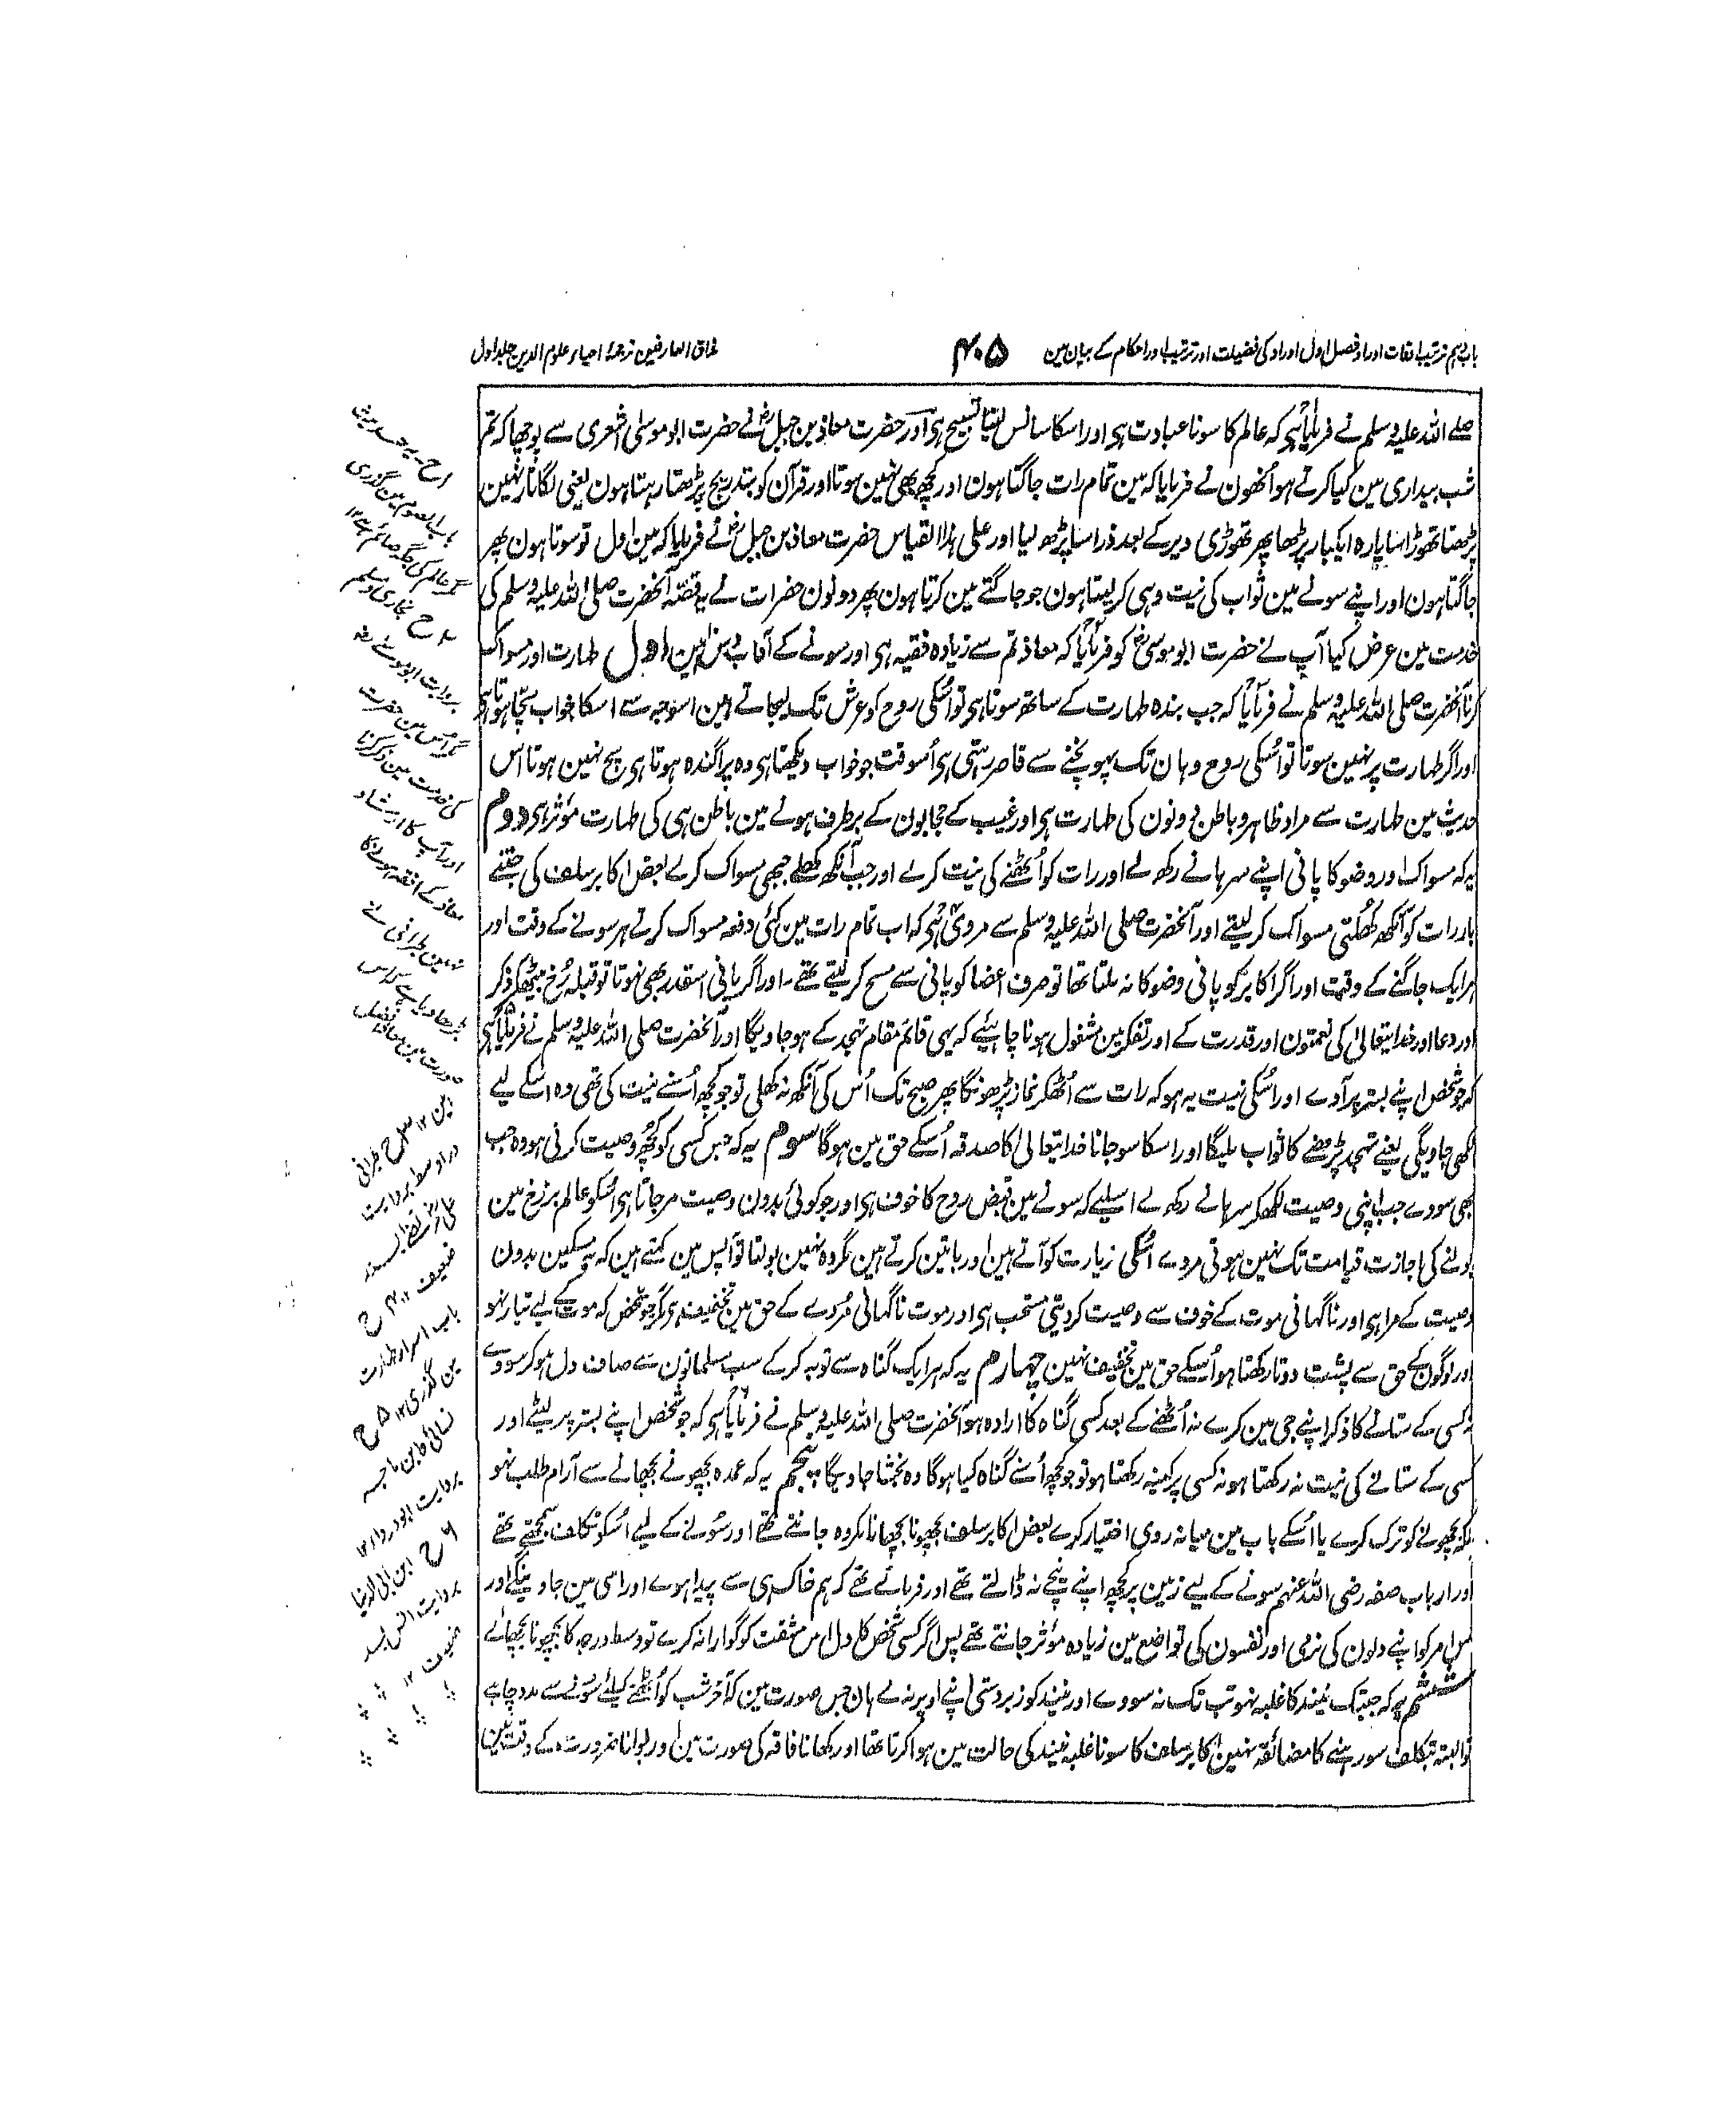 باب دہم ترتیب اوقات اوراد فصل اول اوراد کی فضیلت اور ترتیب اور احکام کے بیان مین
۴۰۵
مذاق العارفین ترجمۂ احیاء علوم الدین جلد اول
صلے اللہ علیہ وسلم نے فرمایا ہی کہ عالم کا سونا عبادت ہی اور اسکا سانس لینا تسبیح ہی اور حضرت معاذ بن جبل رضؓ نے حضرت ابو موسیٰ اشعری سے پوچھا کہ تم
شب بیداری مین کیا کرتے ہو اُنھون نے فرمایا کہ مین تمام رات جاگتا ہون اور کچھ بھی نہین سوتا اور قرآن کو بتدریج پڑھتا رہتا ہون یعنی لگاتار نہین
پڑھتا تھوڑا سا پارہ ایکبار پڑھا پھر تھوڑی دیر کے بعد ذرا سا پڑھ لیا اور علی ہذا القیاس حضرت معاذ بن جبل رضؓ نے فرمایا کہ مین اول تو سوتا ہون پھر
جاگتا ہون اور اپنے سونے مین ثواب کی نیت وہی کر لیتا ہون جو جاگتے مین کرتا ہون پھر دونون حضرات نے یہ قصّہ آنحضرت صلی اللہ علیہ وسلم کی
خدمت مین عرض کیا آپ نے حضرت ابو موسیٰ رضؓ کو فرمایا کہ معاذ تم سے زیادہ فقیہ ہی اور سونے کے آداب دس ہین اول طہارت اور مسواک
کرنا آنحضرت صلی اللہ علیہ وسلم نے فرمایا کہ جب بندہ طہارت کے ساتھ سوتا ہی تو اُسکی روح کو عرش تک لیجاتے ہین اسوجہ سے اسکا خواب سچّا ہوتا ہی
اور اگر طہارت پر نہین سوتا تو اُسکی روح وہان تک پہونچنے سے قاصر رہتی ہی اُسوقت جو خواب دیکھتا ہی وہ پراگندہ ہوتا ہی سچ نہین ہوتا اس
حدیث مین طہارت سے مراد ظاہر و باطن دونون کی طہارت ہی اور غیب کے حجابون کے برطرف ہونے مین باطن ہی کی طہارت مؤثر ہی دوم
یہ کہ مسواک اور وضو کا پانی اپنے سرہانے رکھ لے اور رات کو اُٹھنے کی نیت کرے اور جب آنکھ کھلے جبھی مسواک کرے بعض اکابر سلف کی جتنے
بار رات کو آنکھ کھُلتی مسواک کر لیتے اور آنحضرت صلی اللہ علیہ وسلم سے مروی ہی کہ اب تمام رات مین کئی دفعہ مسواک کرتے ہر سونے کے وقت اور
ہر ایک جاگنے کے وقت اور اگر اکابر کو پانی وضو کا نہ ملتا تھا تو صرف اعضا کو پانی سے مسح کر لیتے تھے۔ اور اگر پانی اسقدر بھی نہوتا تو قبلہ رُخ بیٹھکر ذکر
اور دعا اور خدا یتعالیٰ کی نعمتون اور قدرت کے اور تفکر مین مشغول ہونا چاہیئے کہ یہی قائم مقام تہجد کے ہو جاویگا اور آنحضرت صلی اللہ علیہ وسلم نے فرمایا ہی
کہ جو شخص اپنے بستر پر آوے اور اُسکی نیت یہ ہو کہ رات سے اُٹھکر نماز پڑھونگا پھر صبح تک اُس کی آنکھ نہ کھلی تو جو کچھ اُسنے نیت کی تھی وہ اسکے لیے
لکھی جاویگی یعنے تہجد پڑھنے کا ثواب ملیگا اور اسکا سو جانا خدا یتعالیٰ کا صدقہ اُسکے حق مین ہوگا سوم یہ کہ جس کسی کو کچھ وصیت کرنی ہو وہ جب
بھی سووے جب اپنی وصیت لکھکر سرہانے رکھ لے اسلیے کہ سونے مین قبض روح کا خوف ہی اور جو کوئی بدون وصیت مرجاتا ہی اُسکو عالم برزخ مین
بولنے کی اجازت قیامت تک نہین ہوتی مردے اُسکی زیارت کو آتے ہین اور باتین کرتے ہین مگر وہ نہین بولتا تو آپس مین کہتے ہین کہ یہ مسکین بدون
وصیت کے مرا ہی اور ناگہانی موت کے خوف سے وصیت کر دینی مستحب ہی اور موت ناگہانی مُردے کے حق مین تخفیف ہی مگر جو شخص کہ موت کے لیے تیار نہو
اور لوگون کے حق سے پشت دوتا رکھتا ہو اُسکے حق مین تخفیف نہین چہارم یہ کہ ہر ایک گناہ سے توبہ کرکے سب مسلمانون سے صاف دل ہو کر سووے
نہ کسی کے ستانے کا ذکر اپنے جی مین کرے نہ اُٹھنے کے بعد کسی گناہ کا ارادہ ہو آنحضرت صلی اللہ علیہ وسلم نے فرمایا ہی کہ جو شخص اپنے بستر پر لیٹے اور
کسی کے ستانے کی نیت نہ رکھتا ہو نہ کسی پر کینہ رکھتا ہو تو جو کچھ اُسنے گناہ کیا ہوگا وہ بخشا جاویگا پنجم یہ کہ عمدہ بچھونے بچھانے سے آرام طلب نہو
بلکہ بچھونے کو ترک کرے یا اُسکے باب مین میانہ روی اختیار کرے بعض اکابر سلف بچھونا بچھانا مکروہ جانتے تھے اور سونے کے لیے اُسکو تکلف سمجھتے تھے
اور ارباب صفہ رضی اللہ عنہم سونے کے لیے زمین پر کچھ اپنے نیچے نہ ڈالتے تھے اور فرماتے تھے کہ ہم خاک ہی سے پیدا ہوے اور اسی مین جاوینگے اور
اس امر کو اپنے دلون کی نرمی اور نفسون کی تواضع مین زیادہ مؤثر جانتے تھے پس اگر کسی شخص کا دل اس مشقت کو گوارا نہ کرے تو وسط درجہ کا بچھونا بچھائے
ششم یہ کہ جبتک نیند کا غلبہ نہو تب تک نہ سووے اور نیند کو زبردستی اپنے اوپر نہ لے ہان جس صورت مین کہ آخر شب کو اُٹھنے کیلئے سونے سے مدد چاہے
تو البتہ بتکلف سو رہنے کا مضائقہ نہین اکابر سلف کا سونا غلبۂ نیند کی حالت مین ہوا کرتا تھا اور کھانا فاقہ کی صورت مین اور بولنا ضرورت کے وقت مین
ا ح یہ حدیث
باب الصوم مین گذری
مگر عالم کی جگہ صائم ہے ۱۲
۲ ح بخاری و مسلم
بروایت ابو موسے رضؓ
مگر اُس مین حضرت
کی خدمت مین ذکر کرنا
اور آپ کا ارشاد
معاذ کے افقہ ہونے کا
نہین طبرانی نے
مین ۱۲ ۳ ح طبرانی
در اوسط بروایت
علی رضؓ
ضعیف ۱۲ ۴ ح
باب اسرار طہارت
مین گذری ۱۲ ۵ ح
نسائی و ابن ماجہ
بروایت ابو دردا ۱۲
۶ ح ابن ابی الدنیا
بروایت انس بسند
ضعیف ۱۲